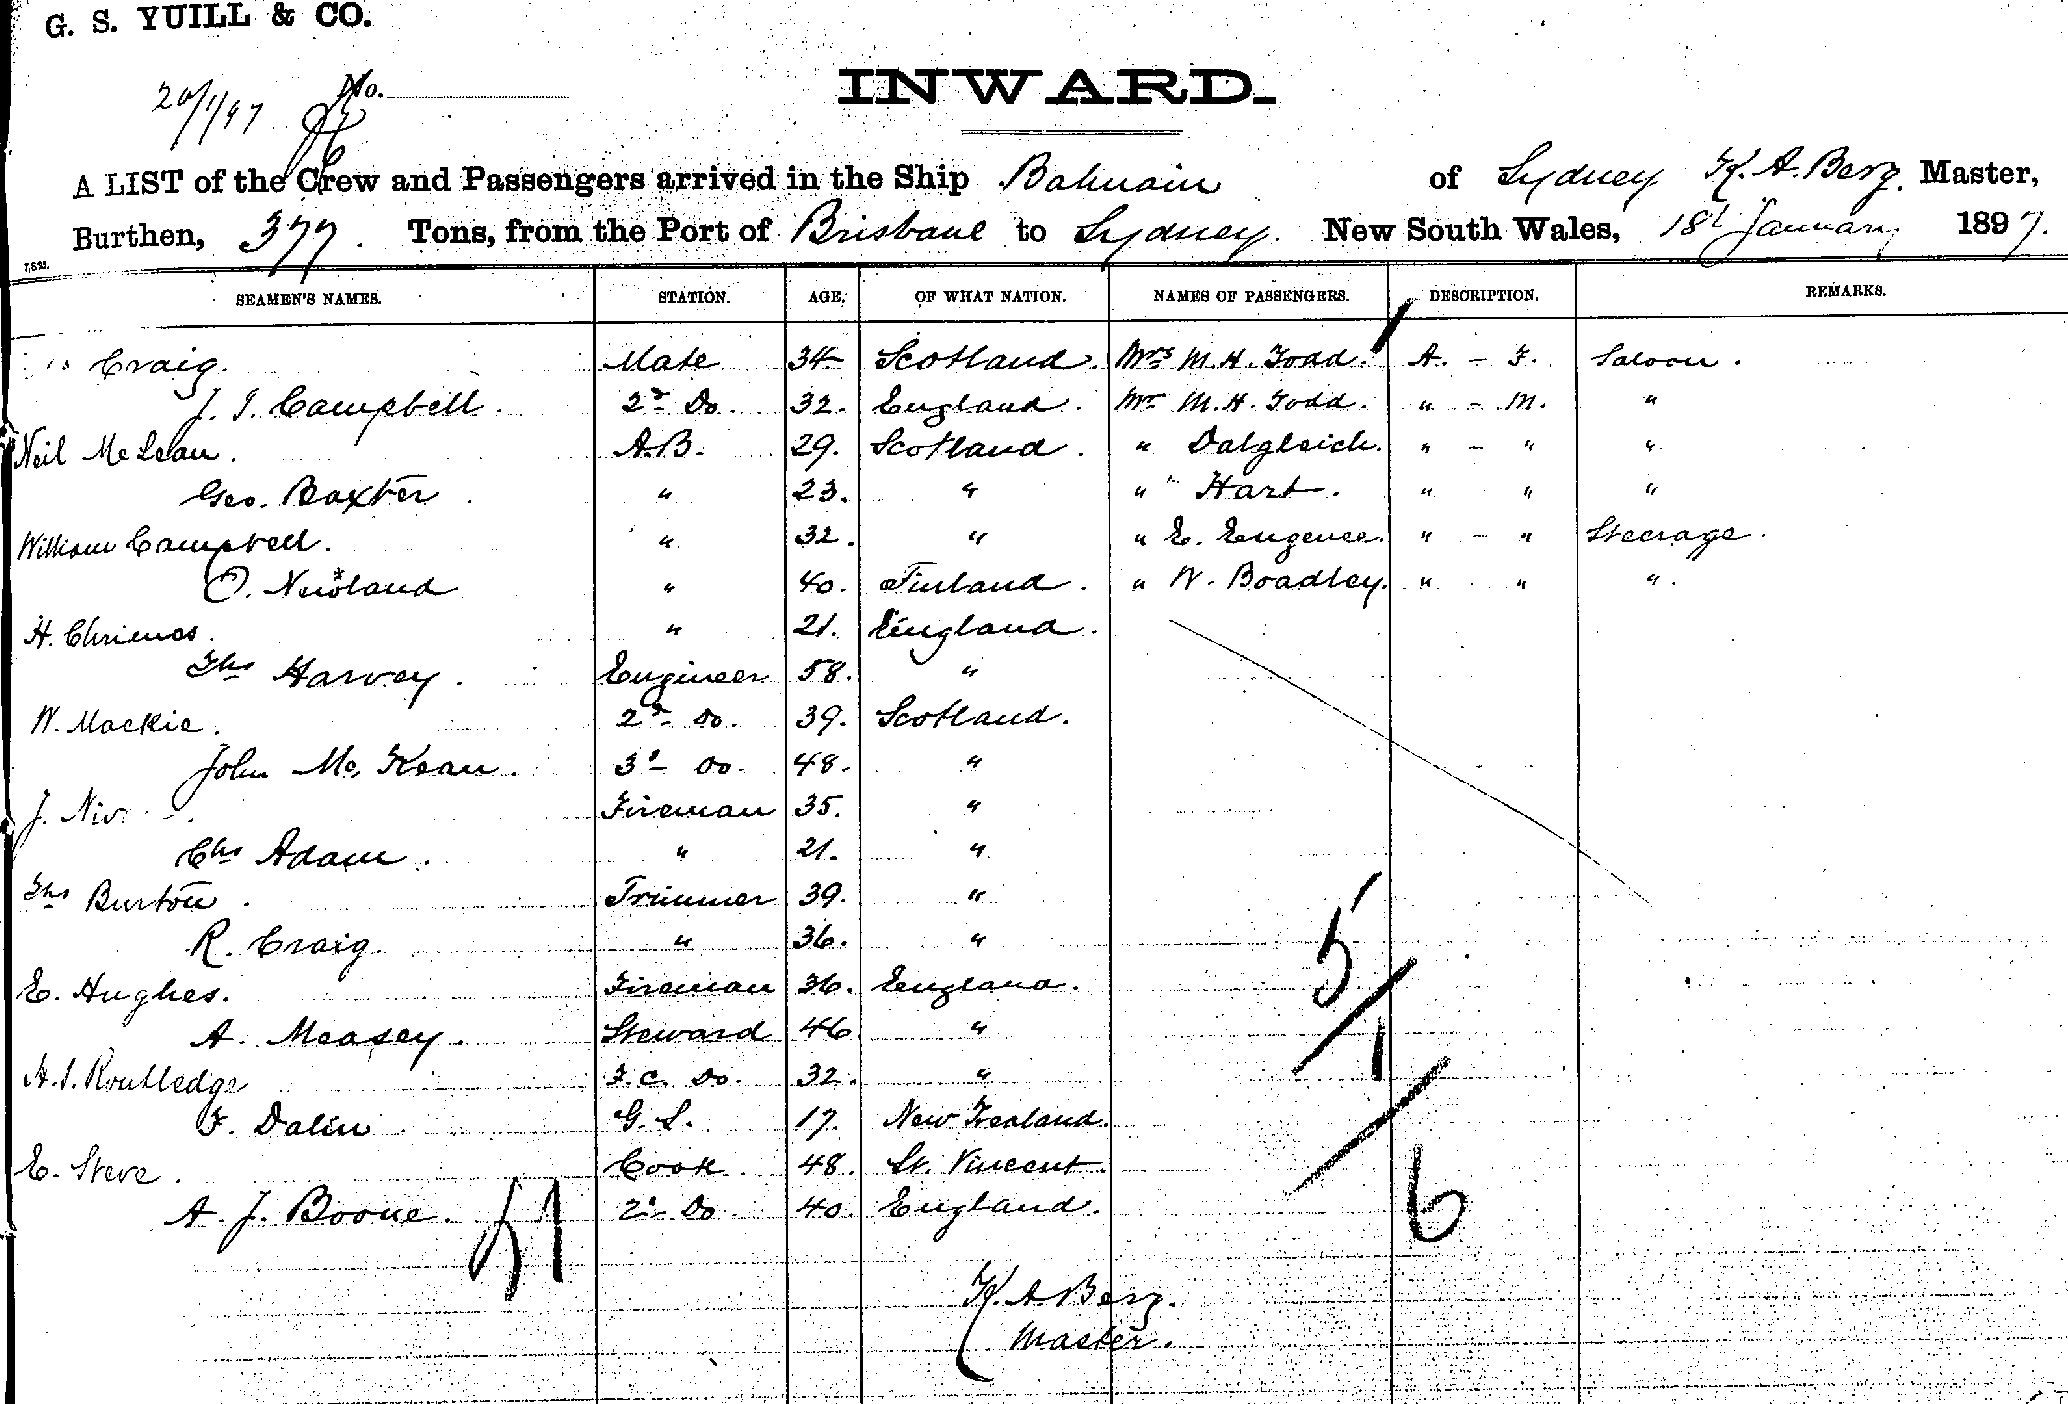 G. S. YUILL & CO.
20/1/97 No.
INWARD.
A LIST of the Crew and Passengers arrived in the Ship Bahrain of Sydney K. A. Berg. Master,
Burthen, 377. Tons, from the Port of Brisbane to Sydney. New South Wales, 18th January 1897.
SEAMEN'S NAMES. STATION. AGE. OF WHAT NATION. NAMES OF PASSENGERS. DESCRIPTION. REMARKS.
Craig. Mate 34 Scotland. Mrs M. H. Todd. A. - F. Saloon.
J. J. Campbell. 2d Do. 32. England. Mr M. H. Todd. " - M. "
Neil McLean. A.B. 29. Scotland. " Dalgleich. " - " "
Geo. Baxter " 23. " " Hart. " " "
William Campbell. " 32. " " E. Eugenee. " - " Steerage.
O. Newland " 40. Finland. " W. Boadley. " " ".
H. Chrimes. " 21. England.
Ths Harvey. Engineer 58. "
W. Mackie. 2d Do. 39. Scotland.
John Mc Kean. 3d Do. 48. "
J. Fireman 35. "
Chs Adam. " 21. "
Ths Burton. Trimmer 39. "
R. Craig. " 36. "
E. Hughes. Fireman 36. England.
A. Measey. Steward 46 "
H. J. Routledge F. C. Do. 32. "
F. Dalin G. S. 17. New Zealand.
E. Steve. Cook 48. St. Vincent.
A. J. Boone. 2d Do 40. England.
5
1
6
K. A. Berg.
Master.